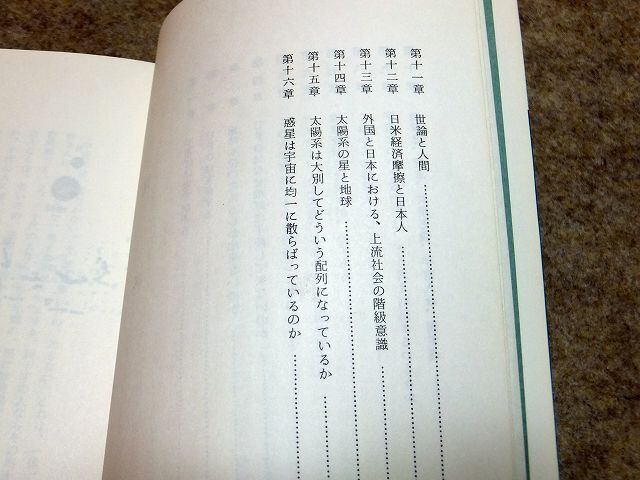 第十一章 世論と人間…………………
第十二章 日米経済摩擦と日本人…………………
第十三章 外国と日本における、上流社会の階級意識…………
第十四章 太陽系の星と地球…………………
第十五章 太陽系は大別してどういう配列になっているか………
第十六章 惑星は宇宙に均一に散らばっているのか…………